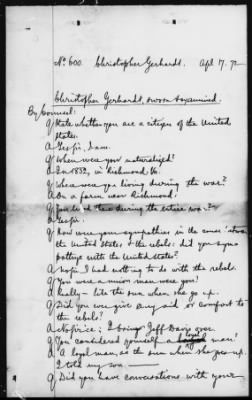 No. 600. Christopher Gerhardt. Apl 17. 72
Christopher Gerhardt, sworn & examined.
By Counsel:
Q State whether you are a citizen of the United
States.
A Yes sir, I am.
Q When were you naturalized?
A In 1832, in Richmond Va.
Q Where were you living during the war?
A On a farm near Richmond.
Q You lived there during the entire war?
A Yes sir.
Q How were your sympathies in the cause
the United States & the rebels: did you sym-
pathize with the United States?
A No sir I had nothing to do with the rebels.
Q You were a union man were you?
A Really - like the sun when she go up.
Q Did you ever give any aid or comfort to
the rebels?
A No sir; I Jeff Davis over.
Q You considered yourself a loyal man?
A "A loyal man, as the sun when she goes up.
I told my son ———
Q Did you have conversations with your